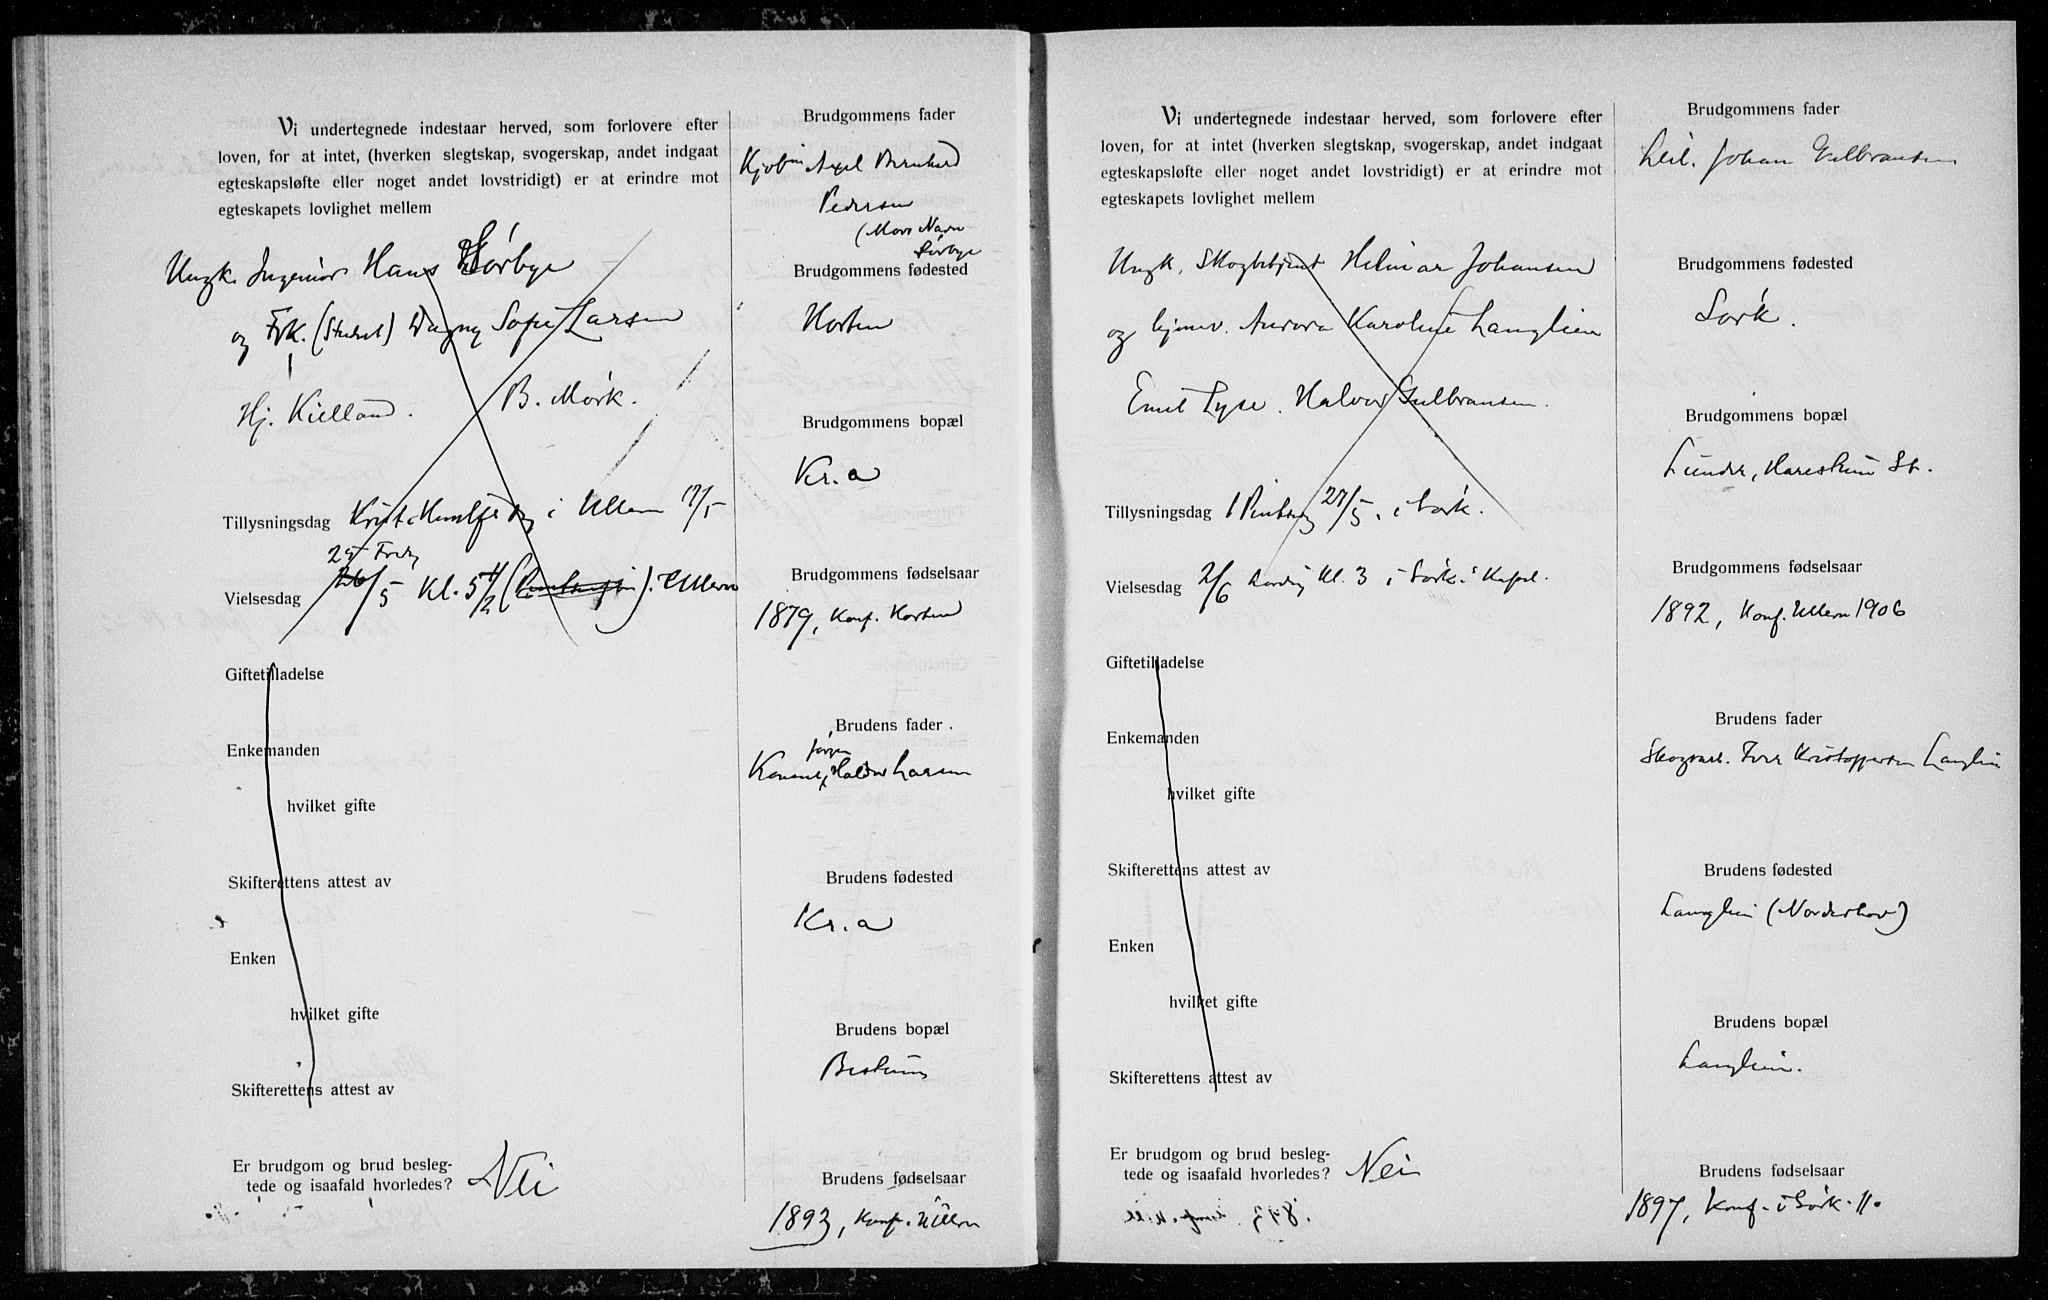 Vi undertegnede indestaar herved, som forlovere efter
loven, for at intet, (hverken slegtskap, svogerskap, andet indgaat
egteskapsløfte eller noget andet lovstridigt) er at erindre mot
egteskapets lovlighet mellem
Ungk. Ingeniør Hans Sørbye
og Frk. (Student) Dagny Sofie Larsen
Hj. Kielland. B. Mørk.
Tillysningsdag Krist. Himlfsdg i Ullern 17/5
25 Fredg
Vielsesdag 26/5 Kl. 5 1/2 Ullern
Giftetilladelse
Enkemanden
hvilket gifte
Skifterettens attest av
Enken
hvilket gifte
Skifterettens attest av
Er brudgom og brud besleg-
tede og isaafald hvorledes? Nei
Brudgommens fader
Kjøbm Axel Bernhard
Pedersen
(Mors Navn
Sørbye
Brudgommens fødested
Horten
Brudgommens bopæl
Kr.a
Brudgommens fødselsaar
1879, Konf. Horten
Brudens fader
Jørgen
Haldor Larsen
Brudens fødested
Kr.a
Brudens bopæl
Bestum
Brudens fødselsaar
1893, Konf. Ullern
Vi undertegnede indestaar herved, som forlovere efter
loven, for at intet, (hverken slegtskap, svogerskap, andet indgaat
egteskapsløfte eller noget andet lovstridigt) er at erindre mot
egteskapets lovlighet mellem
Ungk. Skogbetjent Helmar Johansen
og hjemv. Aurora Karoline Langlien
Emil Lyse. Halvor Gulbransen.
Tillysningsdag 1 Pintsdg 27/5. i Sørk.
Vielsesdag 2/6 Lørdag Kl. 3 i Sørk. Kapel.
Giftetilladelse
Enkemanden
hvilket gifte
Skifterettens attest av
Enken
hvilket gifte
Skifterettens attest av
Er brudgom og brud besleg-
tede og isaafald hvorledes? Nei
Brudgommens fader
Leil. Johan Gulbransen
Brudgommens fødested
Sørk.
Brudgommens bopæl
Lunder, Harestuen St.
Brudgommens fødselsaar
1892, Konf. Ullern 1906
Brudens fader
Skogsarb. Iver Kristoffersen Langlien
Brudens fødested
Langlien (Norderhov)
Brudens bopæl
Langlien.
Brudens fødselsaar
1897, Konf. i Sørk. 11.